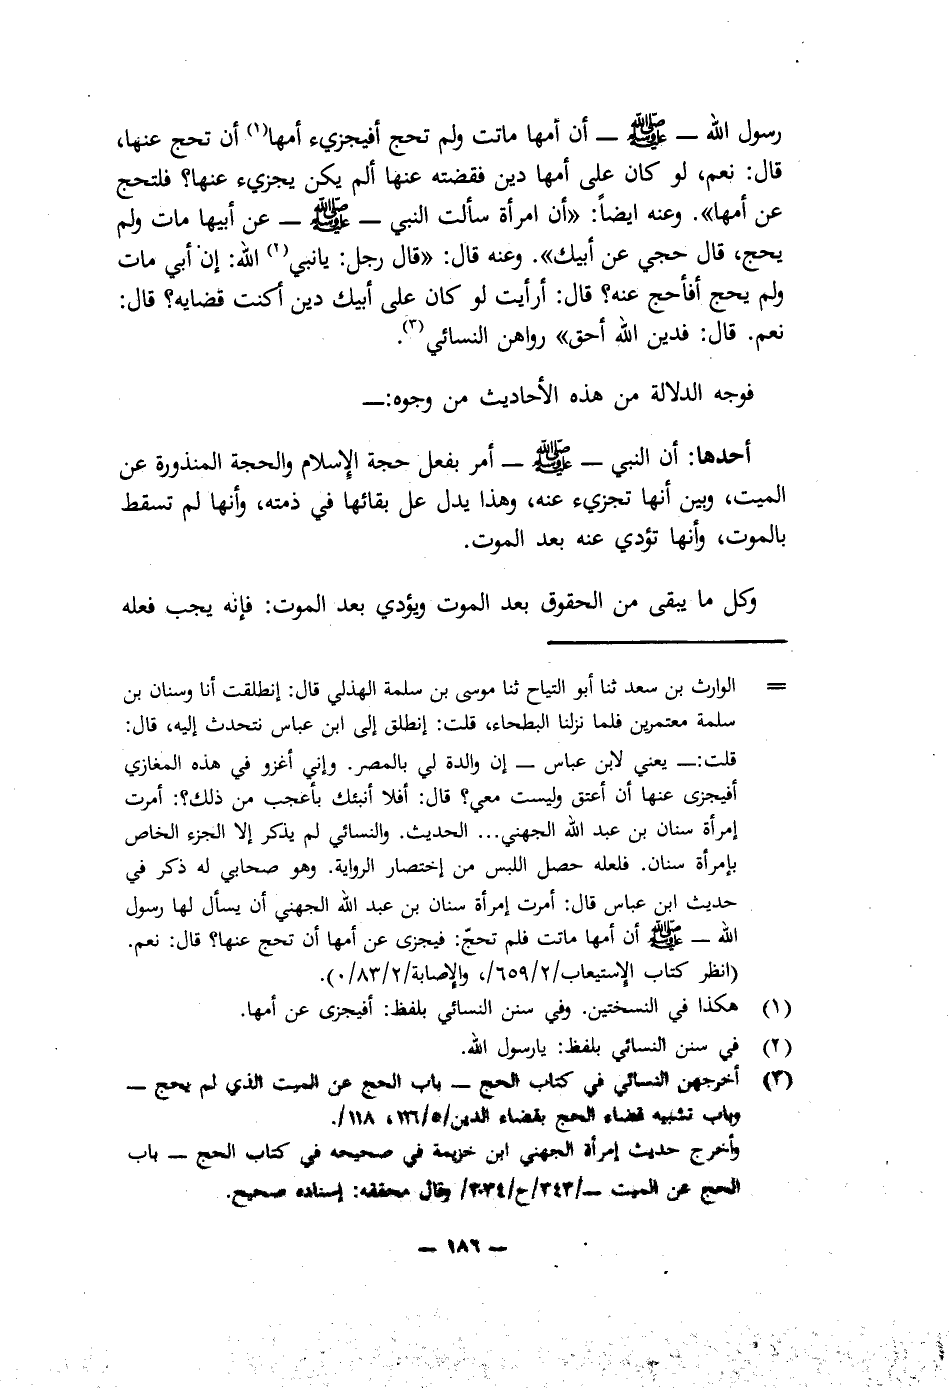 رسول الله — ﷺ — أن أمها ماتت ولم تحج أفيجزيء أمها(١) أن تحج عنها،
قال: نعم، لو كان على أمها دين فقضته عنها ألم يكن يجزيء عنها؟ فلتحج
عن أمها». وعنه ايضاً: «أن امرأة سألت النبي — ﷺ — عن أبيها مات ولم
يحج، قال حجي عن أبيك». وعنه قال: «قال رجل: يانبي(٢) الله: إن أبي مات
ولم يحج أفأحج عنه؟ قال: أرأيت لو كان على أبيك دين أكنت قضايه؟ قال:
نعم. قال: فدين الله أحق» رواهن النسائي(٣).
فوجه الدلالة من هذه الأحاديث من وجوه:—
أحدها: أن النبي — ﷺ — أمر بفعل حجة الإسلام والحجة المنذورة عن
الميت، وبين أنها تجزيء عنه، وهذا يدل عل بقائها في ذمته، وأنها لم تسقط
بالموت، وأنها تؤدي عنه بعد الموت.
وكل ما يبقى من الحقوق بعد الموت ويؤدي بعد الموت: فإنه يجب فعله
= الوارث بن سعد ثنا أبو التياح ثنا موسى بن سلمة الهذلي قال: إنطلقت أنا وسنان بن
سلمة معتمرين فلما نزلنا البطحاء، قلت: إنطلق إلى ابن عباس نتحدث إليه، قال:
قلت:— يعني لابن عباس — إن والدة لي بالمصر. وإني أغزو في هذه المغازي
أفيجزى عنها أن أعتق وليست معي؟ قال: أفلا أنبئك بأعجب من ذلك؟: أمرت
إمرأة سنان بن عبد الله الجهني... الحديث. والنسائي لم يذكر إلا الجزء الخاص
بإمرأة سنان. فلعله حصل اللبس من إختصار الرواية. وهو صحابي له ذكر في
حديث ابن عباس قال: أمرت إمرأة سنان بن عبد الله الجهني أن يسأل لها رسول
الله — ﷺ أن أمها ماتت فلم تحجّ: فيجزى عن أمها أن تحج عنها؟ قال: نعم.
(انظر كتاب الإستيعاب/٦٥٩/٢/، والإصابة/٨٣/٢/٠).
(١) هكذا في النسختين. وفي سنن النسائي بلفظ: أفيجزى عن أمها.
(٢) في سنن النسائي بلفظ: يارسول الله.
(٣) أخرجهن النسائي في كتاب الحج — باب الحج عن الميت الذي لم يحج —
وباب تشبيه قضاء الحج بقضاء الدين/١٦/٥، ١١٨/.
وأخرج حديث إمرأة الجهني ابن خزيمة في صحيحه في كتاب الحج — باب
الحج عن الميت —/٣٤٣/ح/٣٠٣٤/ وقال محققه: إسناده صحيح.
— ١٨٦ —